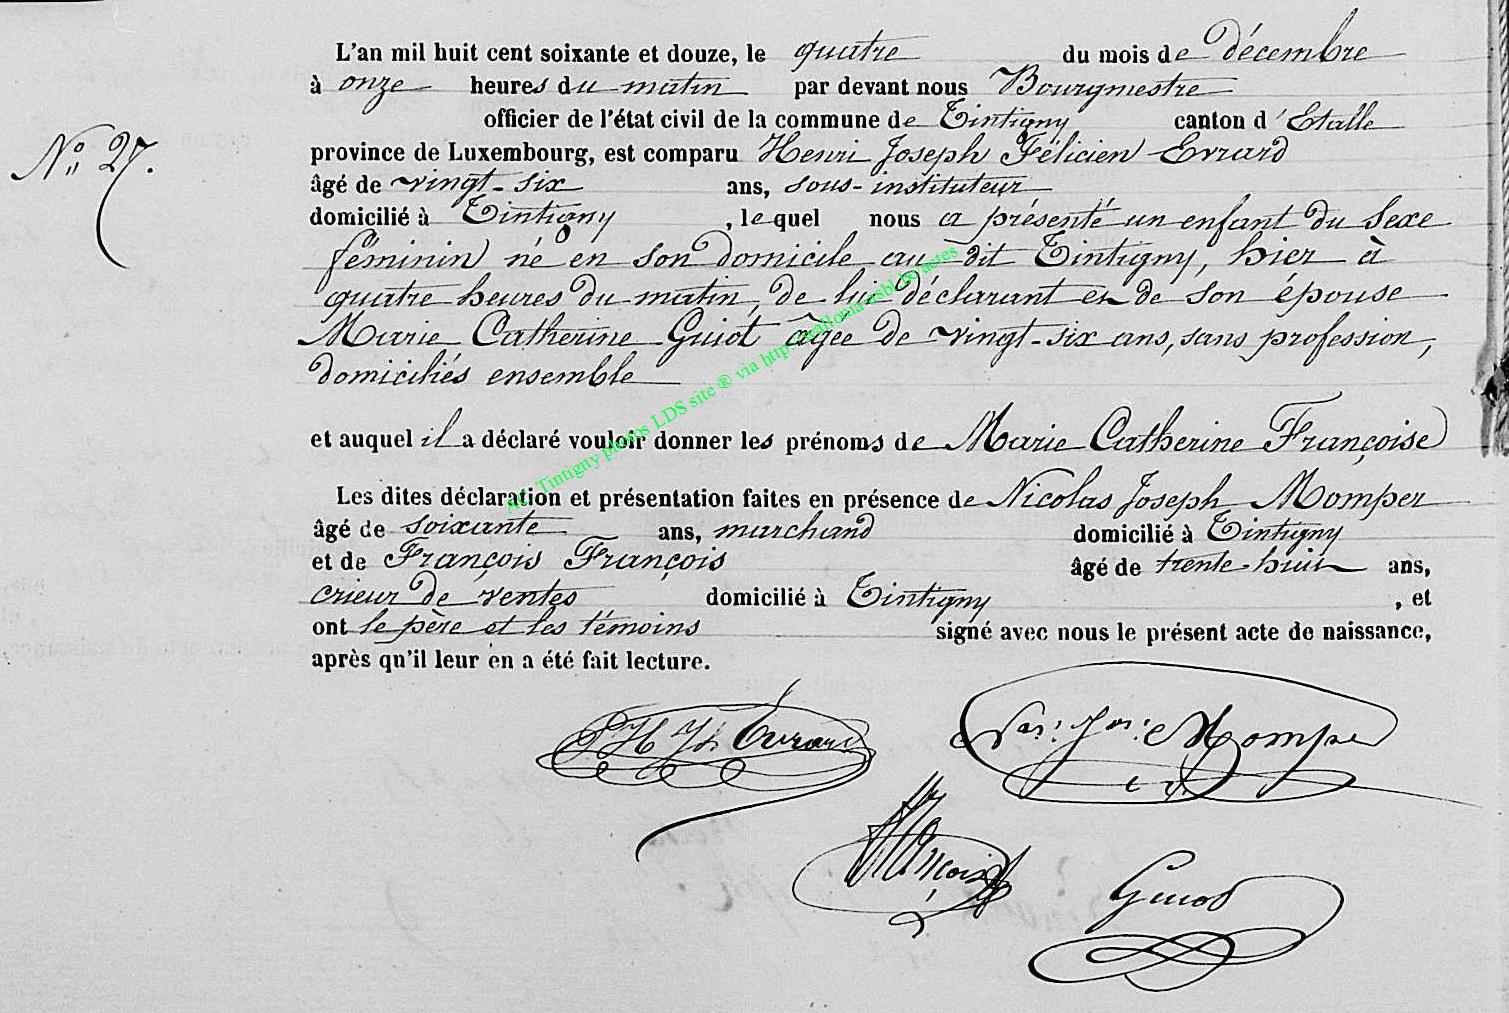 L'an mil huit cent soixante et douze, le quatre du mois de décembre
à onze heures du matin par devant nous Bourgmestre
officier de l'état civil de la commune de Tintigny canton d'Etalle
N° 27.
province de Luxembourg, est comparu Henri Joseph Félicien Evrard
âgé de vingt-six ans, sous-instituteur
domicilié à Tintigny, lequel nous a présenté un enfant du sexe
féminin né en son domicile au dit Tintigny, hier à
quatre heures du matin, de lui déclarant et de son épouse
Marie Catherine Guiot âgée de vingt-six ans, sans profession,
domiciliés ensemble
et auquel il a déclaré vouloir donner les prénoms de Marie Catherine Françoise
Les dites déclaration et présentation faites en présence de Nicolas Joseph Momper
âgé de soixante ans, marchand domicilié à Tintigny
et de François François âgé de trente-huit ans,
crieur de ventes domicilié à Tintigny, et
ont le père et les témoins signé avec nous le présent acte de naissance,
après qu'il leur en a été fait lecture.
H Jh Evrard
Jn: Momper
François
Guiot
AC Tintigny photos LDS site ® via http://wallonia-asbl.be/actes